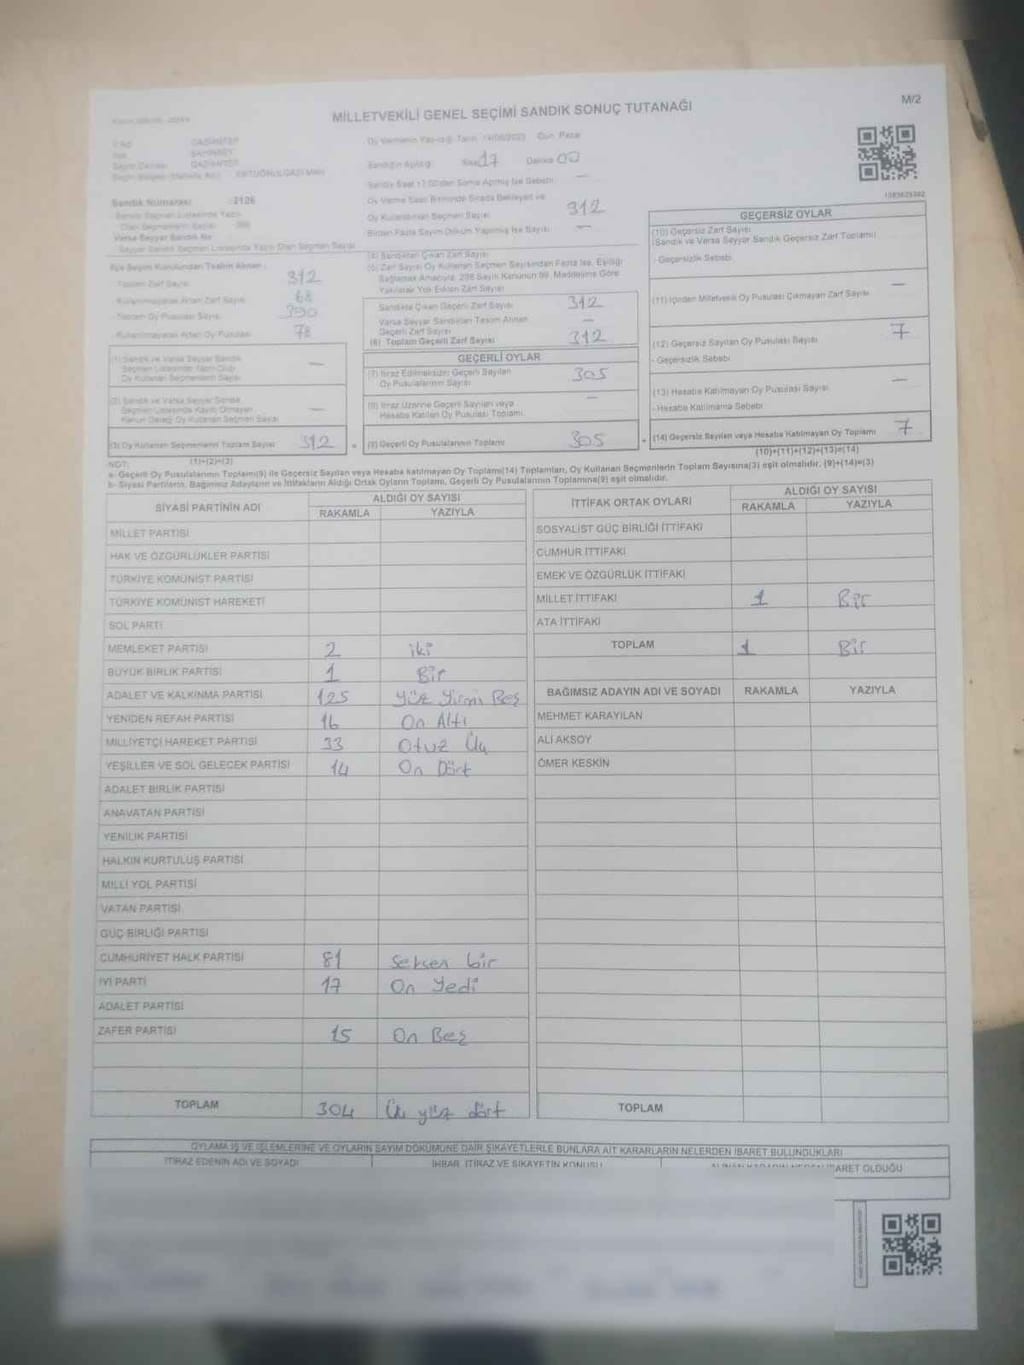 M/2
MİLLETVEKİLİ GENEL SEÇİMİ SANDIK SONUÇ TUTANAĞI
Oy Vermenin Yapıldığı Tarih: 14/05/2023 Gün: Pazar
GAZİANTEP
ŞAHİNBEY
GAZİANTEP
ERTUĞRULGAZİ MAH.
Sandığın Açıldığı Saat 17 Dakika 00
Sandık Saat 17:00'den Sonra Açılmış İse Sebebi: —
Sandık Numarası : 2126
Oy Verme Saati Bitiminde Sırada Bekleyen ve
Oy Kullanılan Seçmen Sayısı 312
Birden Fazla Sayım Döküm Yapılmış İse Sayısı —
İlçe Seçim Kurulundan Teslim Alınan :
- Toplam Zarf Sayısı 312
- Kullanılmayarak Artan Zarf Sayısı 68
- Toplam Oy Pusulası Sayısı 390
- Kullanılmayarak Artan Oy Pusulası 78
(1) Sandık ve Varsa Seyyar Sandık
Seçmen Listesinde Yazılı Olup
Oy Kullanan Seçmenlerin Sayısı —
(2) Sandık ve Varsa Seyyar Sandık
Seçmen Listesinde Kayıtlı Olmayan
Kanun Gereği Oy Kullanan Seçmen Sayısı —
(3) Oy Kullanan Seçmenlerin Toplam Sayısı 312
(1)+(2)=(3)
(4) Sandıktan Çıkan Zarf Sayısı
(5) Zarf Sayısı Oy Kullanan Seçmen Sayısından Fazla İse, Eşitliği
Sağlamak Amacıyla, 298 Sayılı Kanunun 98. Maddesine Göre
Yakılarak Yok Edilen Zarf Sayısı
Sandıkta Çıkan Geçerli Zarf Sayısı 312
Varsa Seyyar Sandıktan Teslim Alınan
Geçerli Zarf Sayısı —
(6) Toplam Geçerli Zarf Sayısı 312
GEÇERLİ OYLAR
(7) İtiraz Edilmeksizin Geçerli Sayılan
Oy Pusulalarının Sayısı 305
(8) İtiraz Üzerine Geçerli Sayılan veya
Hesaba Katılan Oy Pusulası Toplamı —
= (9) Geçerli Oy Pusulalarının Toplamı 305
GEÇERSİZ OYLAR
(10) Geçersiz Zarf Sayısı
(Sandık ve Varsa Seyyar Sandık Geçersiz Zarf Toplamı)
- Geçersizlik Sebebi
(11) İçinden Milletvekili Oy Pusulası Çıkmayan Zarf Sayısı —
(12) Geçersiz Sayılan Oy Pusulası Sayısı 7
- Geçersizlik Sebebi
(13) Hesaba Katılmayan Oy Pusulası Sayısı —
- Hesaba Katılmama Sebebi
+ (14) Geçersiz Sayılan veya Hesaba Katılmayan Oy Toplamı 7
(10)+(11)+(12)+(13)=(14)
NOT:
a- Geçerli Oy Pusulalarının Toplamı(9) ile Geçersiz Sayılan veya Hesaba katılmayan Oy Toplamı(14) Toplamları, Oy Kullanan Seçmenlerin Toplam Sayısına(3) eşit olmalıdır. (9)+(14)=(3)
b- Siyasi Partilerin, Bağımsız Adayların ve İttifakların Aldığı Ortak Oyların Toplamı, Geçerli Oy Pusulalarının Toplamına(9) eşit olmalıdır.
SİYASİ PARTİNİN ADI ALDIĞI OY SAYISI
RAKAMLA YAZIYLA
MİLLET PARTİSİ
HAK VE ÖZGÜRLÜKLER PARTİSİ
TÜRKİYE KOMÜNİST PARTİSİ
TÜRKİYE KOMÜNİST HAREKETİ
SOL PARTİ
MEMLEKET PARTİSİ 2 iki
BÜYÜK BİRLİK PARTİSİ 1 Bir
ADALET VE KALKINMA PARTİSİ 125 Yüz Yirmi Beş
YENİDEN REFAH PARTİSİ 16 On Altı
MİLLİYETÇİ HAREKET PARTİSİ 33 Otuz Üç
YEŞİLLER VE SOL GELECEK PARTİSİ 14 On Dört
ADALET BİRLİK PARTİSİ
ANAVATAN PARTİSİ
YENİLİK PARTİSİ
HALKIN KURTULUŞ PARTİSİ
MİLLİ YOL PARTİSİ
VATAN PARTİSİ
GÜÇ BİRLİĞİ PARTİSİ
CUMHURİYET HALK PARTİSİ 81 Seksen bir
İYİ PARTİ 17 On Yedi
ADALET PARTİSİ
ZAFER PARTİSİ 15 On Beş
TOPLAM 304 Üç yüz dört
İTTİFAK ORTAK OYLARI ALDIĞI OY SAYISI
RAKAMLA YAZIYLA
SOSYALİST GÜÇ BİRLİĞİ İTTİFAKI
CUMHUR İTTİFAKI
EMEK VE ÖZGÜRLÜK İTTİFAKI
MİLLET İTTİFAKI 1 Bir
ATA İTTİFAKI
TOPLAM 1 Bir
BAĞIMSIZ ADAYIN ADI VE SOYADI RAKAMLA YAZIYLA
MEHMET KARAYILAN
ALİ AKSOY
ÖMER KESKİN
TOPLAM
OYLAMA İŞ VE İŞLEMLERİNE VE OYLARIN SAYIM DÖKÜMÜNE DAİR ŞİKAYETLERLE BUNLARA AİT KARARLARIN NELERDEN İBARET BULUNDUKLARI
İTİRAZ EDENİN ADI VE SOYADI İHBAR, İTİRAZ VE ŞİKAYETİN KONUSU İBARET OLDUĞU